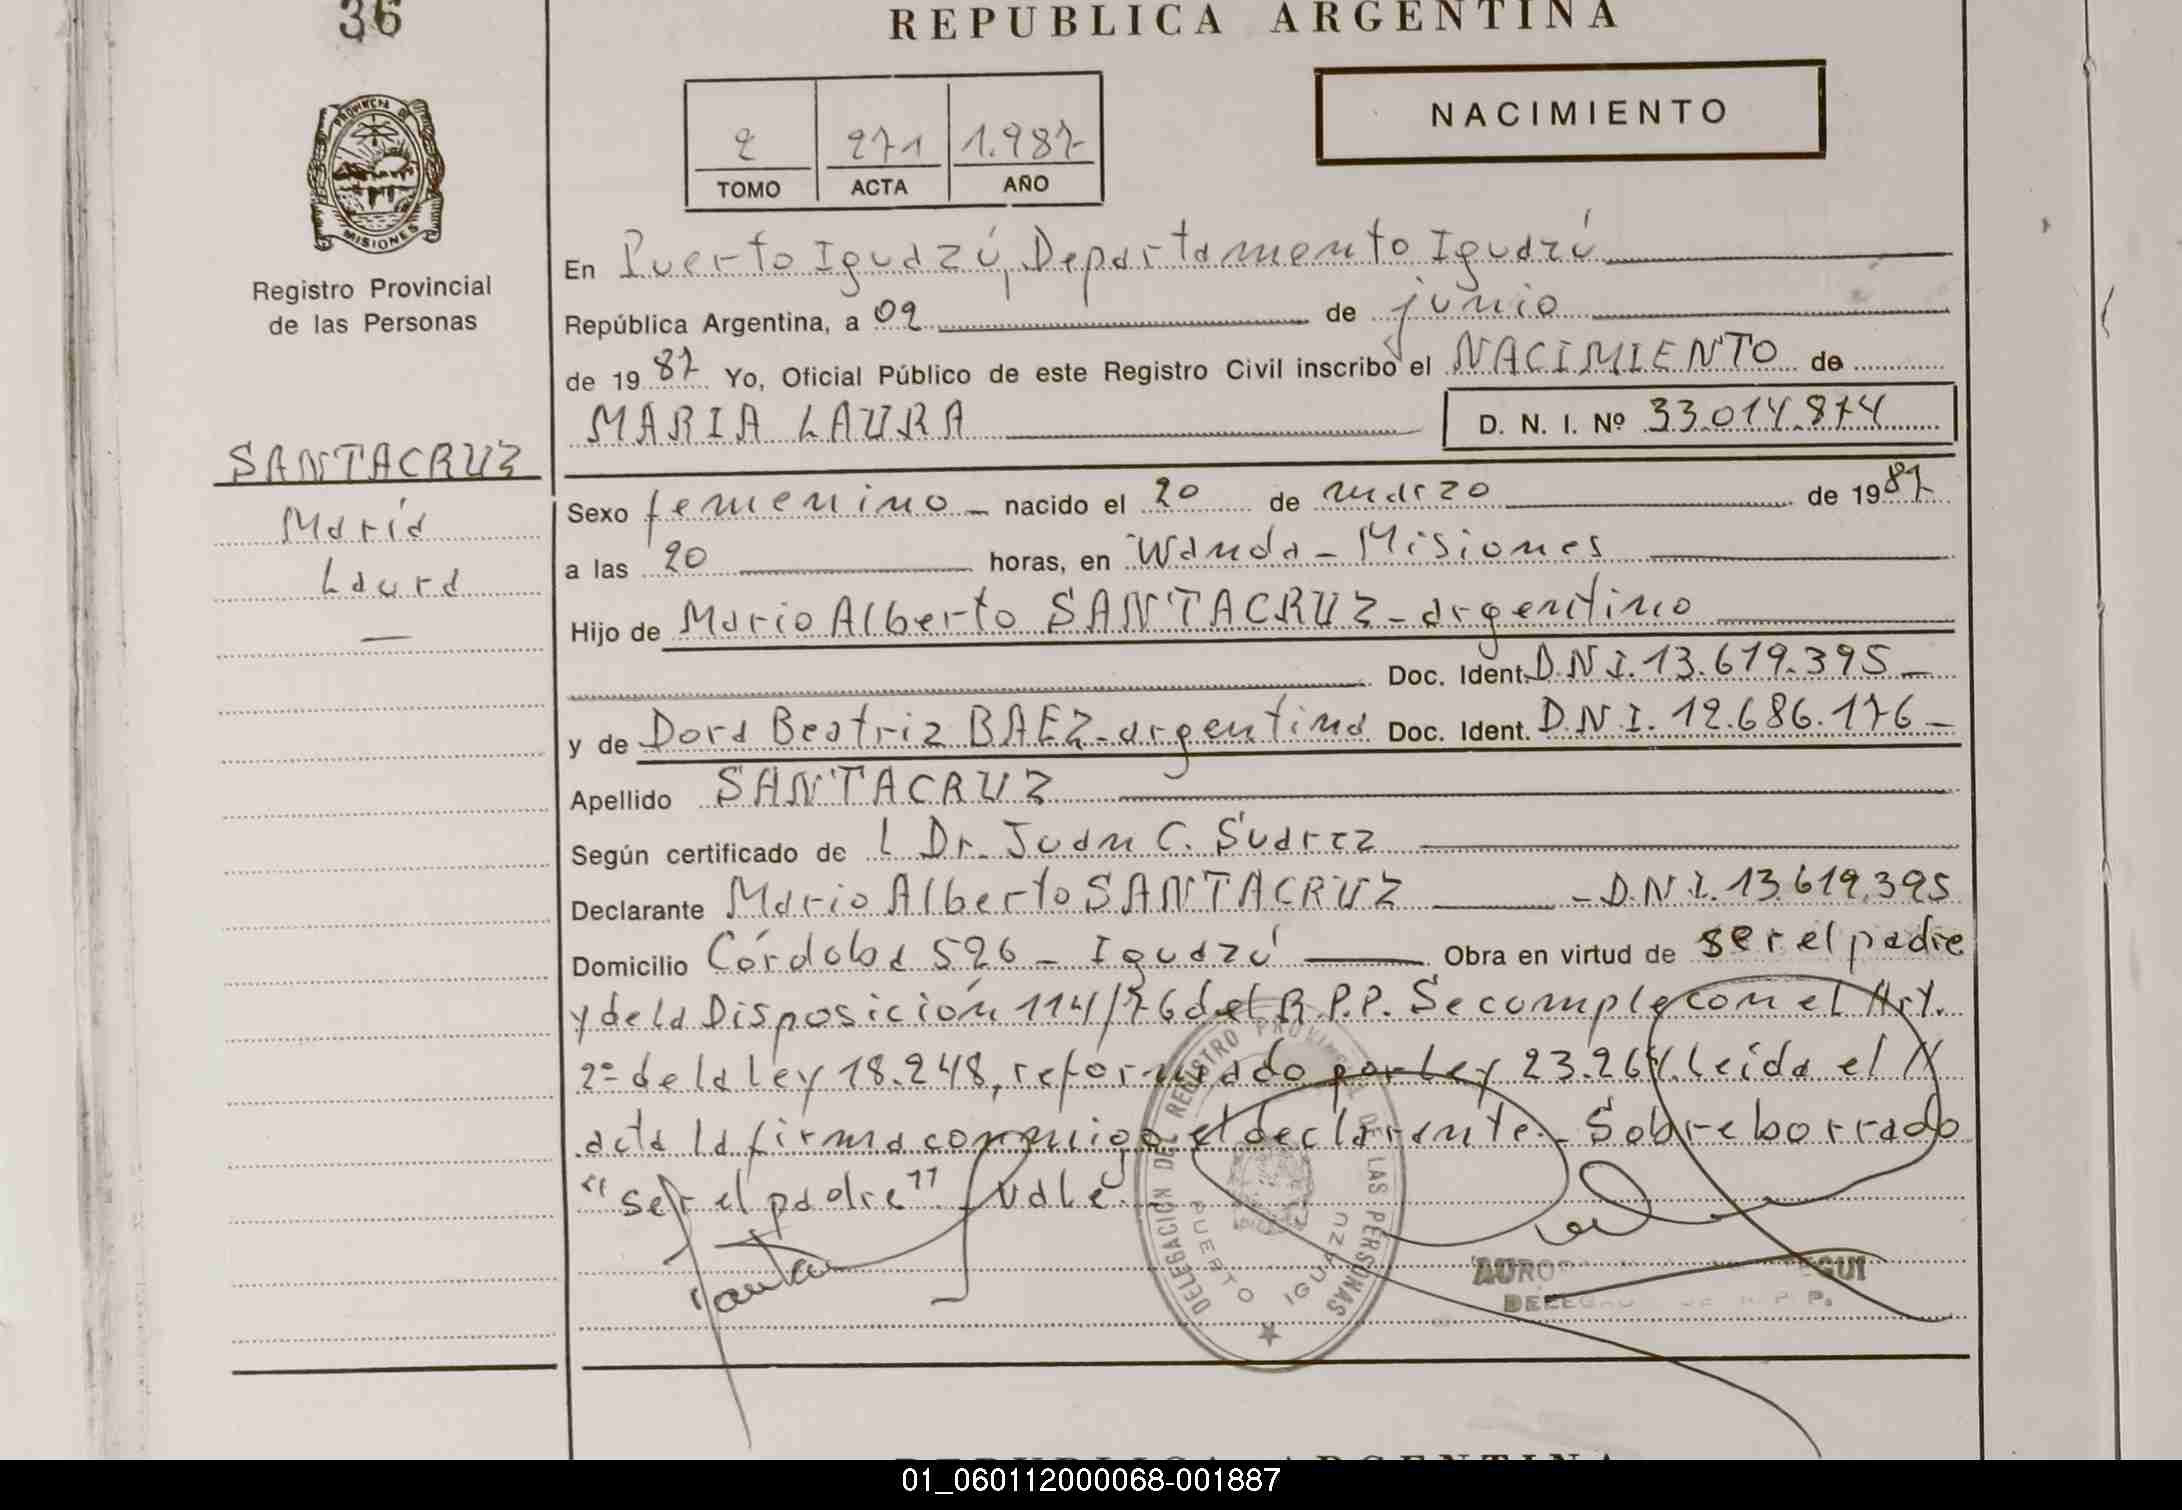 36
REPUBLICA ARGENTINA
PROVINCIA DE
MISIONES
Registro Provincial
de las Personas
2 271 1.987
TOMO ACTA AÑO
NACIMIENTO
En Puerto Iguazú, Departamento Iguazú
República Argentina, a 09 de junio
de 19 87 Yo, Oficial Público de este Registro Civil inscribo el NACIMIENTO de
MARIA LAURA D. N. I. Nº 33.014.874
SANTACRUZ
María
Laura
Sexo femenino - nacido el 20 de marzo de 1987
a las 20 horas, en Wanda - Misiones
Hijo de Mario Alberto SANTACRUZ - argentino
Doc. Ident. D.N.I. 13.619.395 -
y de Dora Beatriz BAEZ - argentina Doc. Ident. D.N.I. 12.686.176 -
Apellido SANTACRUZ
Según certificado de l Dr. Juan C. Suarez
Declarante Mario Alberto SANTACRUZ - D.N.I. 13.619.395
Domicilio Córdoba 526 - Iguazú Obra en virtud de ser el padre
y de la Disposición 114/76 del R.P.P. Se cumple con el Art.
2º de la Ley 18.248, reformado por Ley 23.264. Leída el
acta la firma conmigo el declarante. - Sobreborrado
"ser el padre" vale.
DELEGACIÓN DEL REGISTRO PROVINCIAL DE LAS PERSONAS
PUERTO IGUAZU
REPUBLICA ARGENTINA
01_060112000068-001887